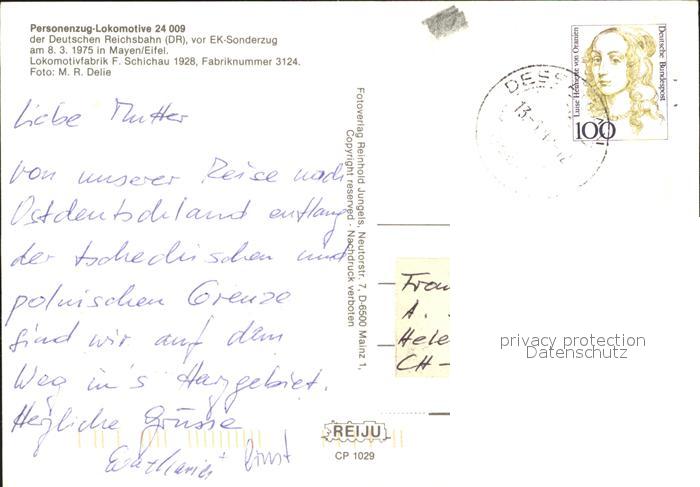 Personenzug-Lokomotive 24 009
der Deutschen Reichsbahn (DR), vor EK-Sonderzug
am 8. 3. 1975 in Mayen/Eifel.
Lokomotivfabrik F. Schichau 1928, Fabriknummer 3124.
Foto: M. R. Delie
Liebe Mutter
von unserer Reise nach
Ostdeutschland entlang
der tschechischen und
polnischen Grenze
sind wir auf dem
Weg in's Harzgebiet.
Herzliche Grüsse
+ Ernst
Fotoverlag Reinhold Jungels, Neutorstr. 7, D-6500 Mainz 1,
Copyright reserved - Nachdruck verboten
Luise Henriette von Oranien
Deutsche Bundespost
100
DESS
Frau
A.
Hele
CH-
privacy protection
Datenschutz
REIJU
CP 1029